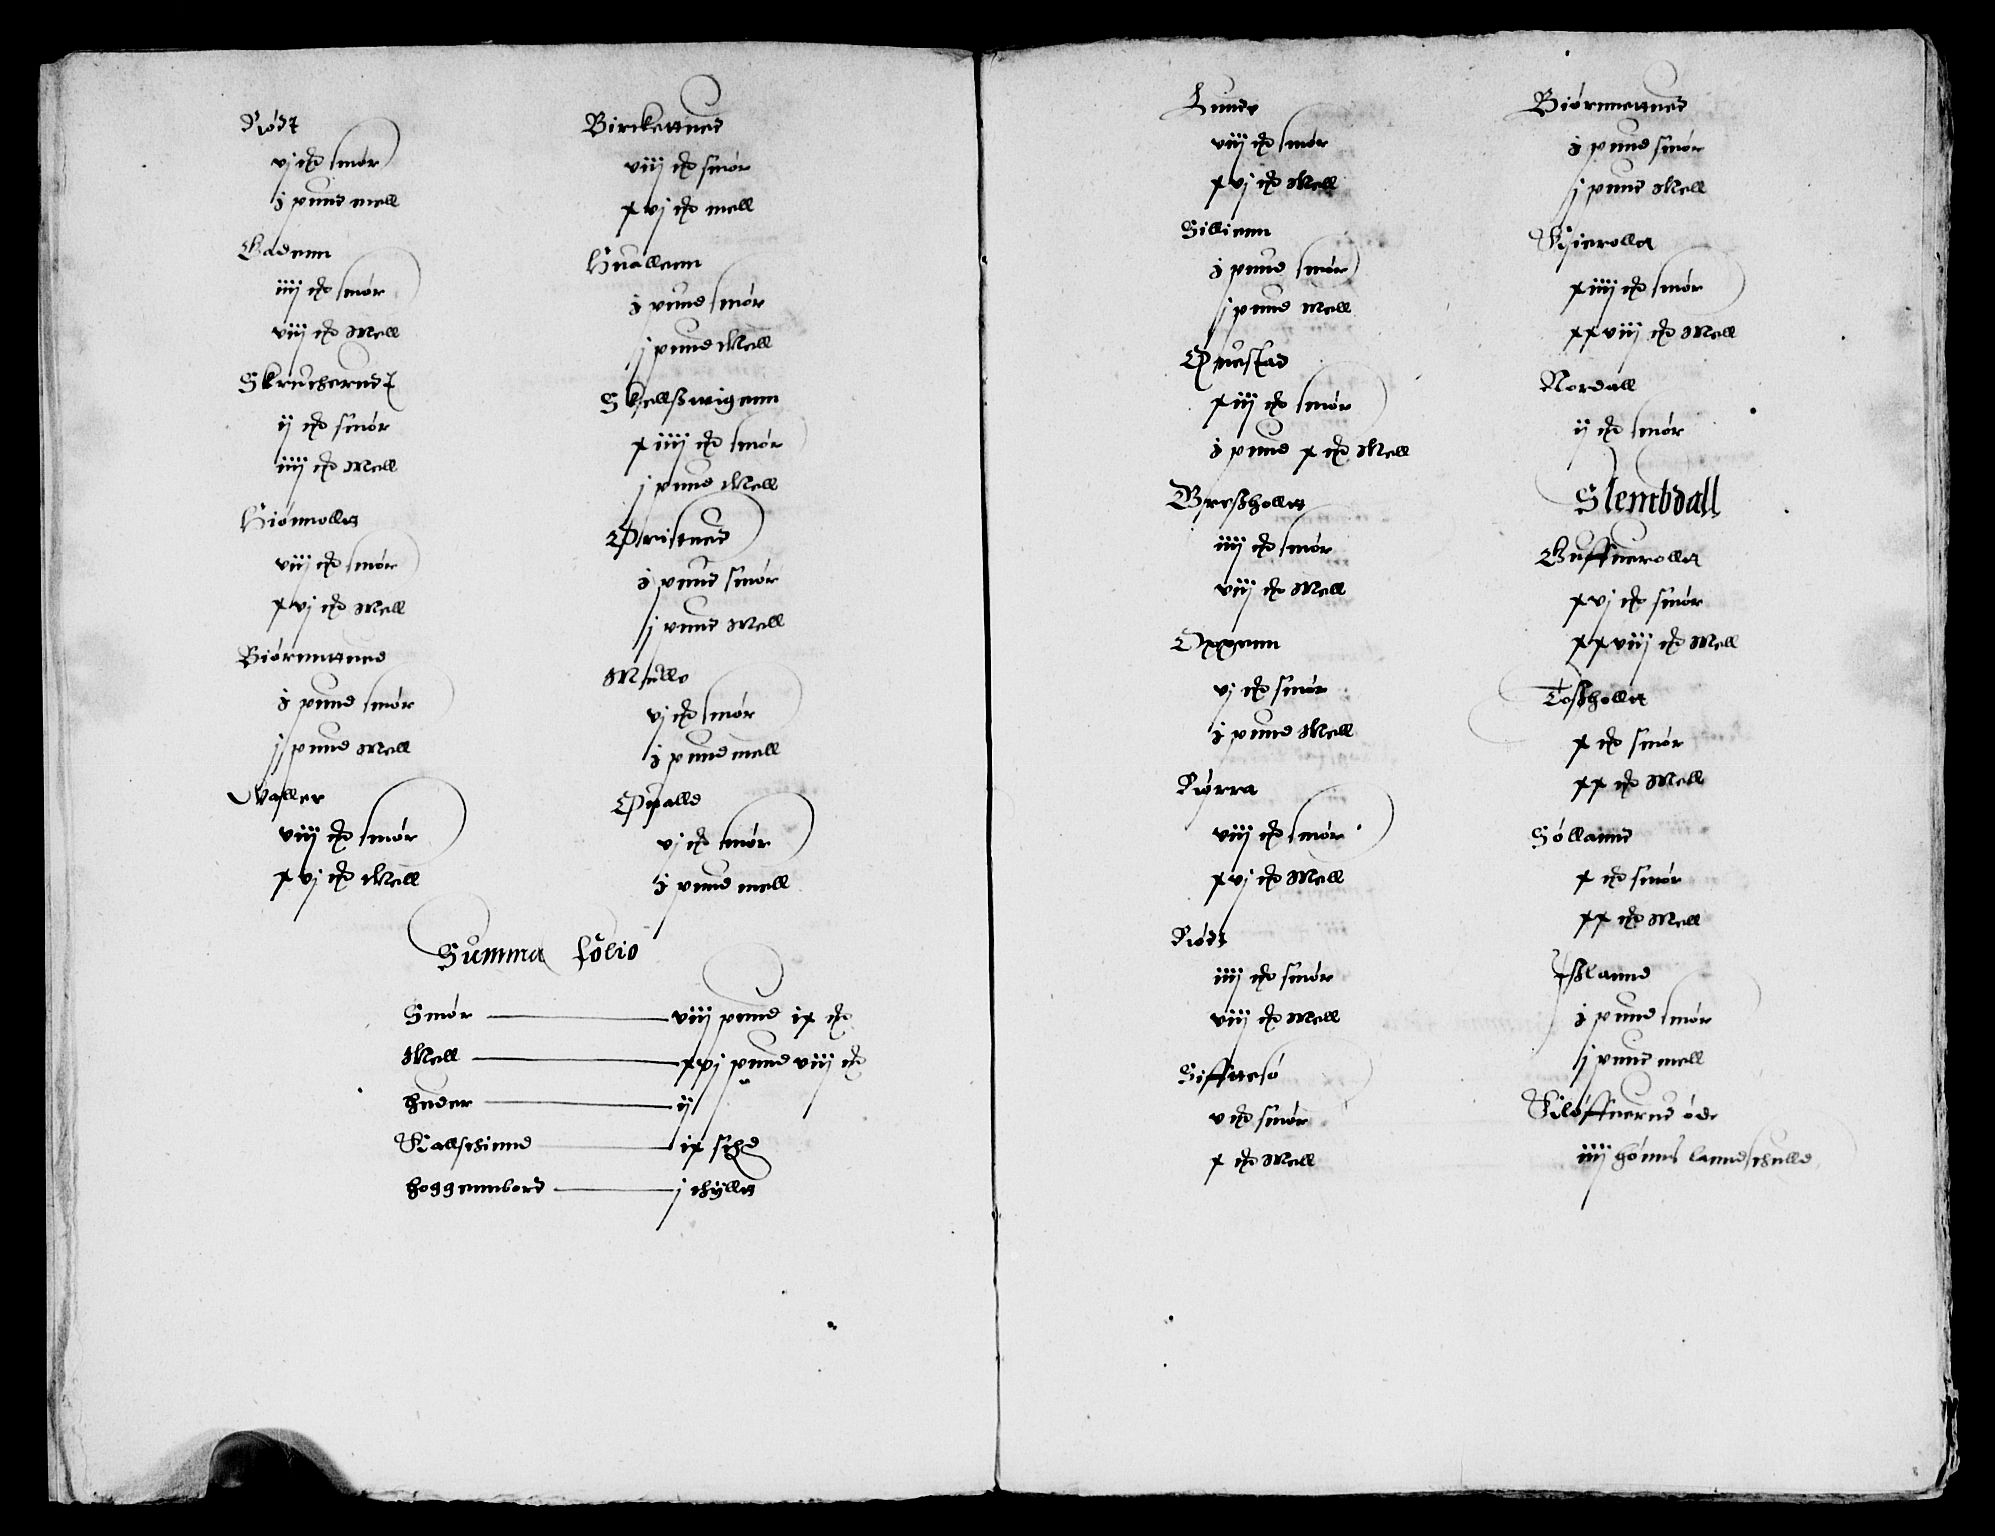 Rødt
vj ℔ smør
j pund mell
Badenn
iiij ℔ smør
viij ℔ Mell
Skruchersdt
ij ℔ smør
iiij ℔ Mell
Hiønnollt
viij ℔ smør
xvj ℔ Mell
Biørnnttnes
j pund smør
j pund Mell
Waller
viij ℔ smør
xvj ℔ Mell
Birckettnes
viij ℔ smør
xvj ℔ mell
Huallenn
j pund smør
j pund Mell
Skiellßwigenn
xiiij ℔ smør
j pund Mell
Pristnes
j pund smør
j pund Mell
Melle
vj ℔ smør
j pund mell
Opalle
vj ℔ smør
j pund mell
Summa folio
Smør viij pund ix ℔
Mell xvj pund viij ℔
huder ij
Kallschinnd ix
hoggennbord j thyllt
Lunde
viij ℔ smør
xvj ℔ Mell
Sillienn
j pund smør
j pund Mell
Questad
xiij ℔ smør
j pund x ℔ Mell
Breßhollt
iiij ℔ smør
viij ℔ Mell
Oppenn
vj ℔ smør
j pund Mell
Kiørra
viij ℔ smør
xvj ℔ Mell
Rødt
iiij ℔ smør
viij ℔ Mell
Sifftesø
v ℔ smør
x ℔ Mell
Biørnnettnes
j pund smør
j pund Mell
Kierollt
xiiij ℔ smør
xxviij ℔ Mell
Nordall
ij ℔ smør
Slembdall
Guffuerollt
xvj ℔ smør
xxviij ℔ Mell
Toßhollt
x ℔ smør
xx ℔ Mell
Søllannd
x ℔ smør
xx ℔ Mell
Ißlannd
j pund smør
j pund mell
Kiløffuernd øde
iiij hønns lanndschulld